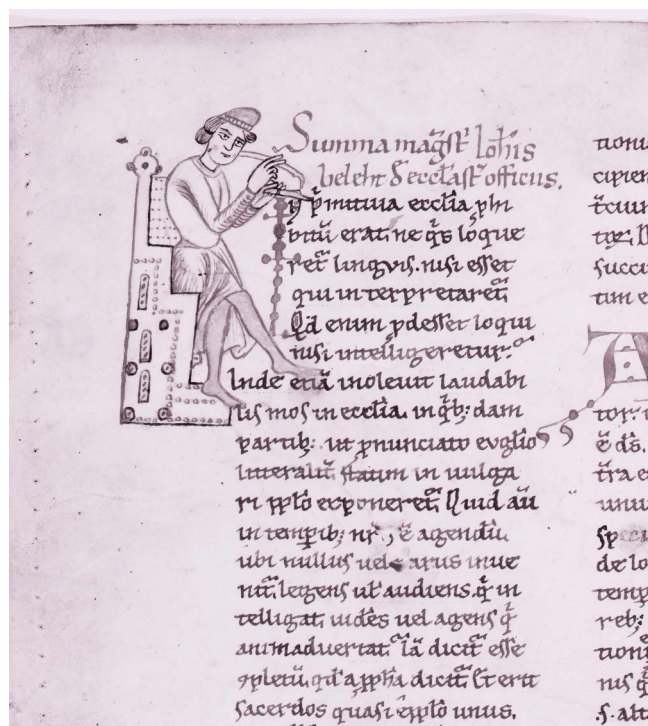 Summa mag̃st̃ Ioh̃is
beleht d̃ eccl̃ast̃ officiis.
In p̃mitiua eccl̃ia ꝓhi
bitũ erat. ne q̃s lo̾que
ret̃ linguis. nisi esset
qui interpretaret̃.
Qd̃ enim ꝓdesset loqui
nisi intelligeretur.
Inde etiã inoleuit laudabi
lis mos in eccl̃ia. in q̃b; dam
partib; ut ꝓnunciato euglio
litteralit̃ statim in uulga
ri ppl̃o exponeret̃. Quid aũ
in temꝑib; nr̃is ẽ agendũ.
ubi nullus uel rarus inue
nit̃. legens ul̃ audiens. q̃ in
telligat. uidẽs uel agens q̃
animaduertat. Iã dicit̃ esse
ꝯpletũ. qd̃ a ꝓph̃a dicit̃. Et erit
sacerdos quasi ẽ ppl̃o unus.
tioni
cipien
succi
tum e
A
tor.
ẽ ds̃.
tr̃a e
unu
de lo
temp
reb;
tioni
nis q̃
.s. alt